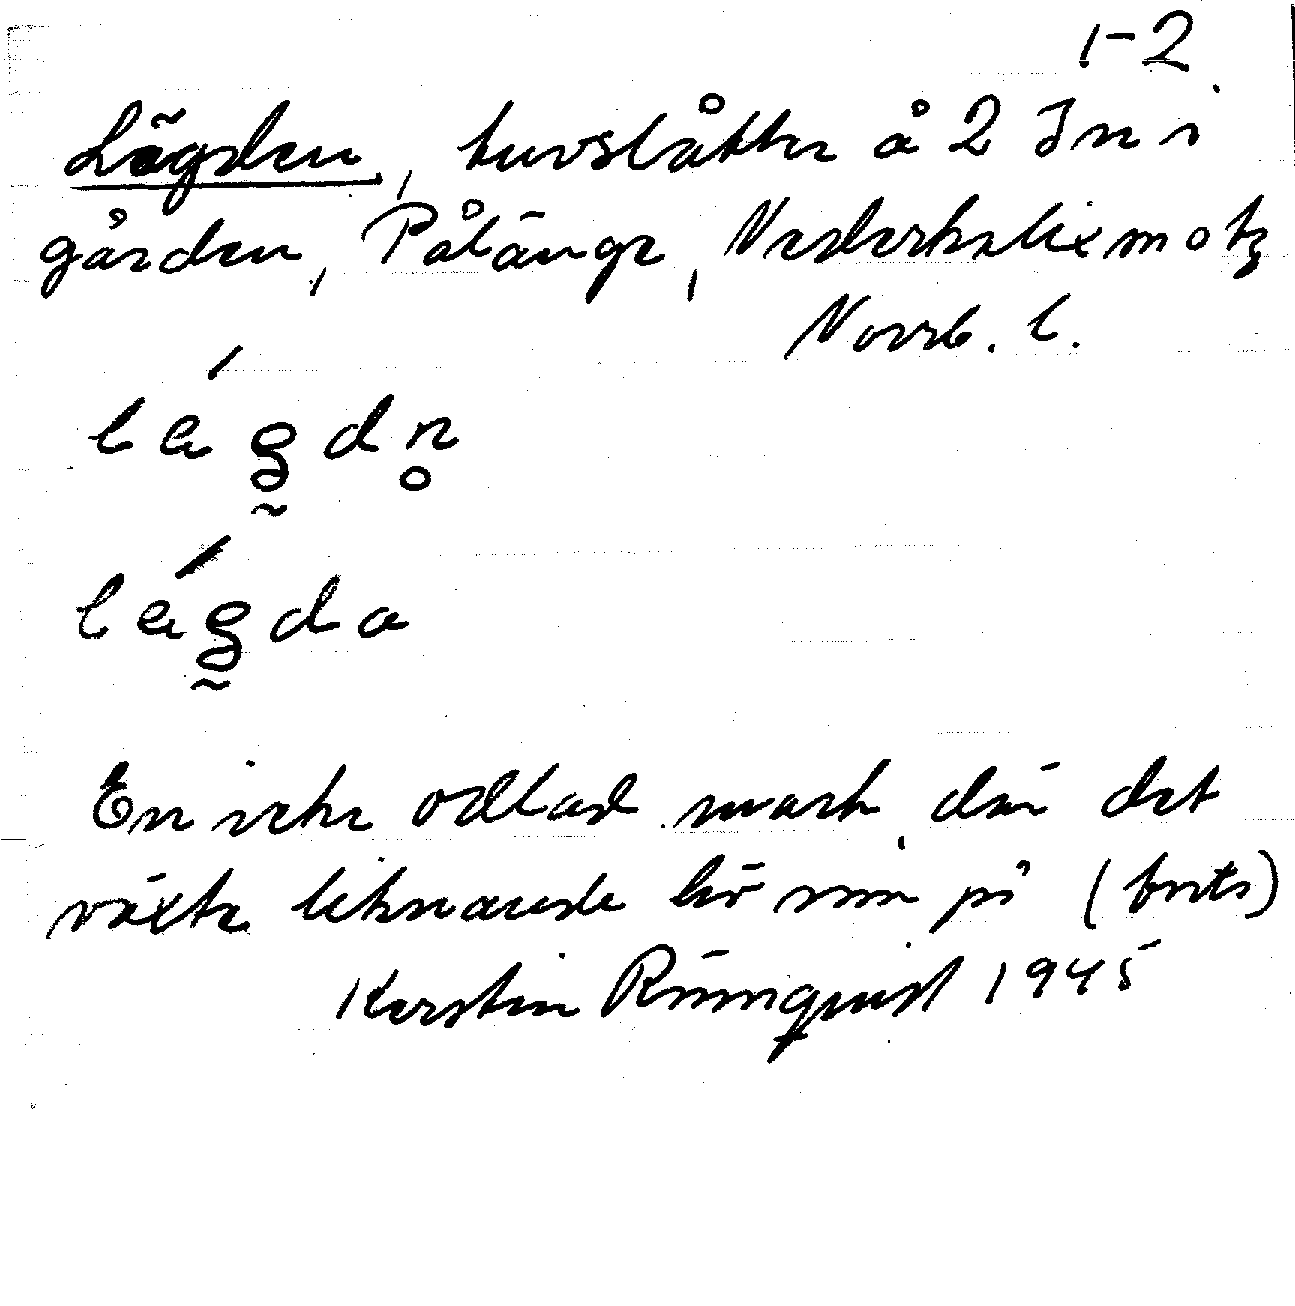 1-2
Lägden, tuvslåtter å 2 In i
gården, Pålänge, Nederkalix
Norrb. l.
En icke odlad mark, där det
växte liknande hö som på (forts)
Kerstin Rönnquist 1945